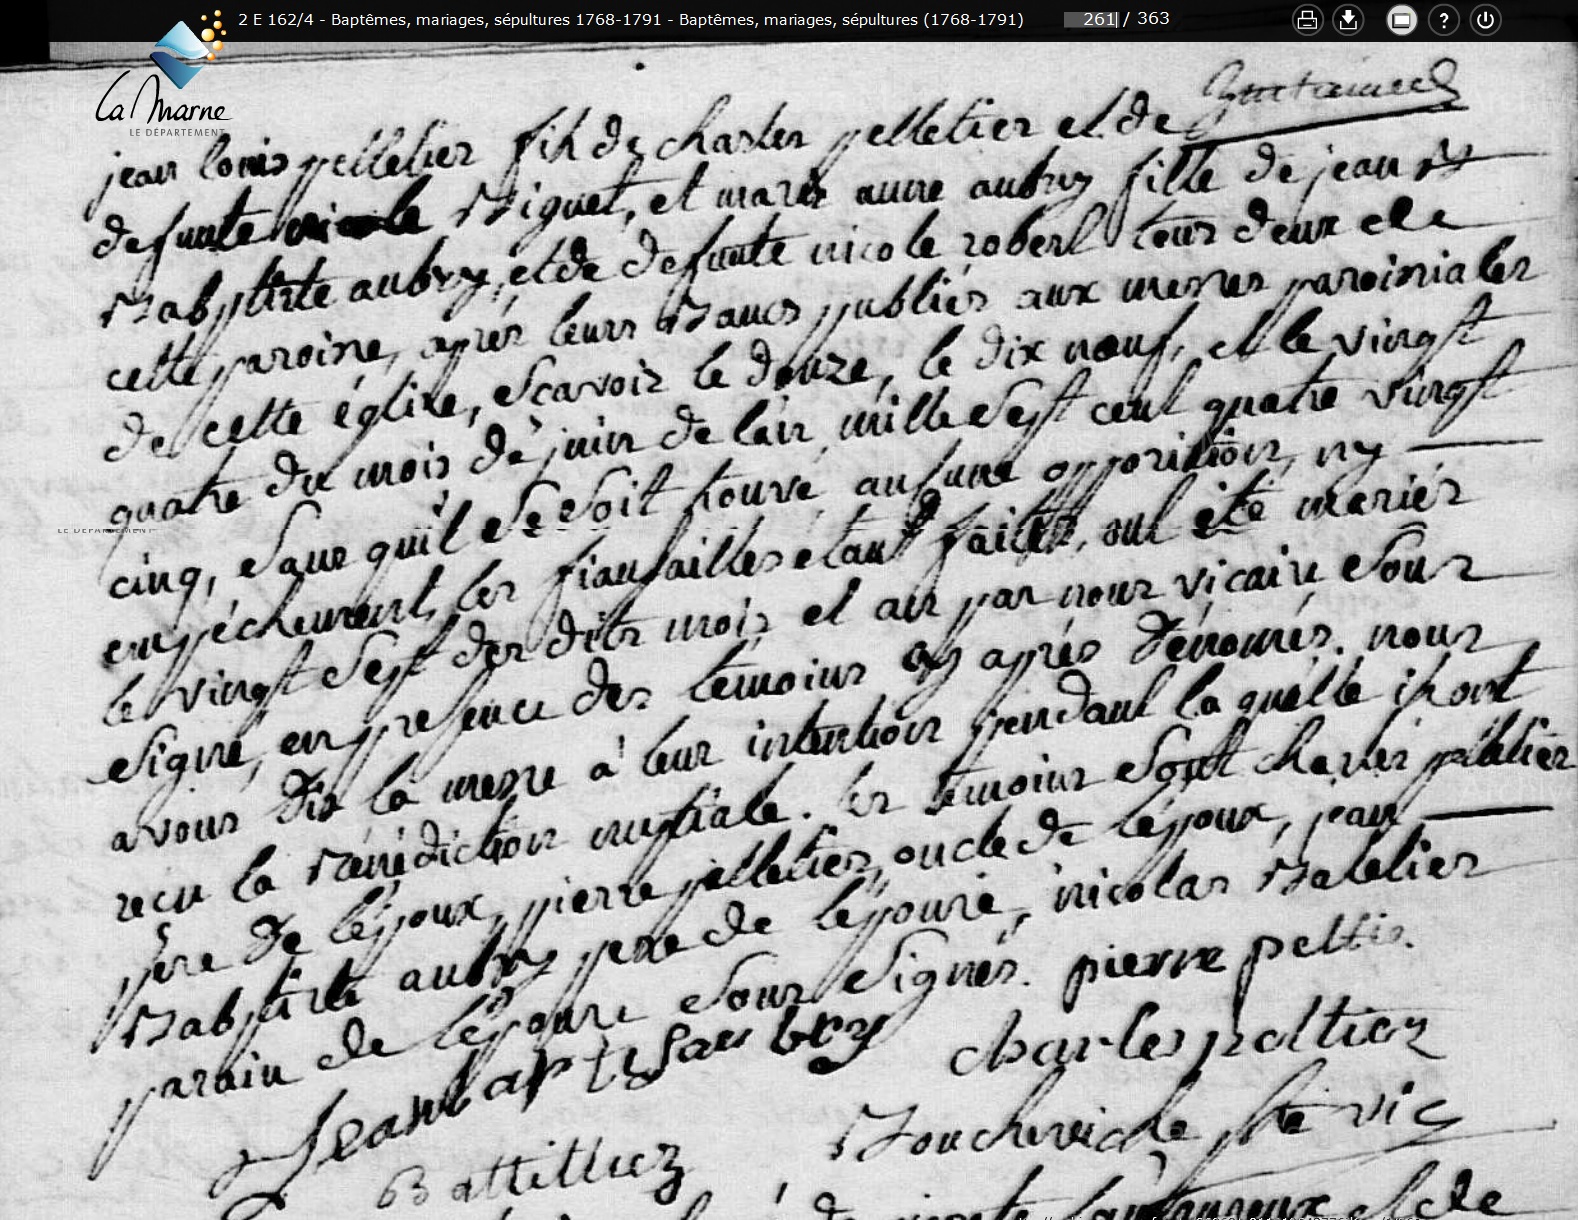 2 E 162/4 - Baptêmes, mariages, sépultures 1768-1791 - Baptêmes, mariages, sépultures (1768-1791) 261 / 363
La Marne
LE DÉPARTEMENT
jean louis pelletier fils de charles pelletier et de
defunte nicole Biguet, et marie anne aubry fille de jean
Baptiste aubry, et de defunte nicole robert tous deux de
cette paroisse, après leurs Bancs publiés aux messes paroissiales
de cette église, scavoir le douze, le dix neuf, et le vingt
quatre du mois de juin de l'an mille sept cent quatre vingt
cinq, sans qu'il se soit trouvé aucune opposition, ny
LE DÉPARTEMENT
empêchement, les fiançailles étant faittes, ont été mariés
le vingt sept des dits mois et an par nous vicaire sous
signé, en presence des témoins cy après dénomés. nous
avons dis la messe à leur intention pendant la quelle ils ont
reçu la Bénédiction nuptiale. les témoins sont charles pelletier
père de l'époux, pierre pelletier, oncle de l'époux, jean
Baptiste aubry pere de l'épouse, nicolas Batelier
parain de l'épouse sous signés. pierre peltie.
Jean baptis aubry charles peltier
Battilliez